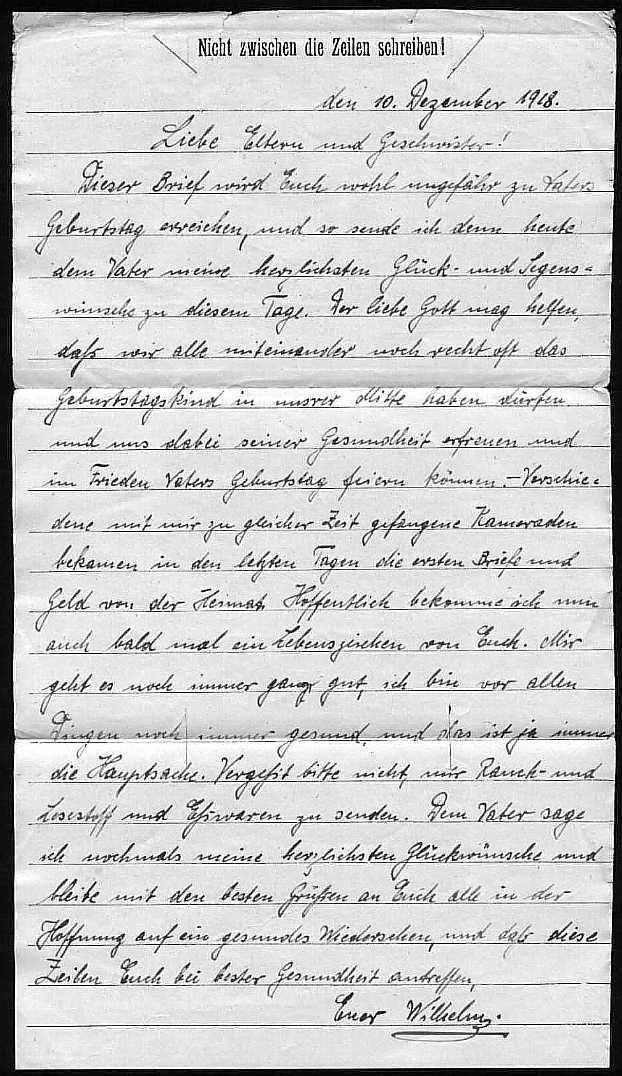 Nicht zwischen die Zeilen schreiben!
den 10. Dezember 1918.
Liebe Eltern und Geschwister!
Dieser Brief wird Euch wohl ungefähr zu Vaters
Geburtstag erreichen, und so sende ich denn heute
dem Vater meine herzlichsten Glück- und Segens=
wünsche zu diesem Tage. Der liebe Gott mag helfen,
daß wir alle miteinander noch recht oft das
Geburtstagskind in unsrer Mitte haben dürfen
und uns dabei seiner Gesundheit erfreuen und
im Frieden Vaters Geburtstag feiern können. – Verschie=
dene mit mir zu gleicher Zeit gefangene Kameraden
bekamen in den letzten Tagen die ersten Briefe und
Geld von der Heimat. Hoffentlich bekomme ich nun
auch bald mal ein Lebenszeichen von Euch. Mir
geht es noch immer ganz gut, ich bin vor allen
Dingen noch immer gesund, und das ist ja immer
die Hauptsache. Vergeßt bitte nicht, mir Rauch- und
Lesestoff und Eßwaren zu senden. Dem Vater sage
ich nochmals meine herzlichsten Glückwünsche und
bleibe mit den besten Grüßen an Euch alle in der
Hoffnung auf ein gesundes Wiedersehen, und daß diese
Zeilen Euch bei bester Gesundheit antreffen,
Euer Wilhelm.